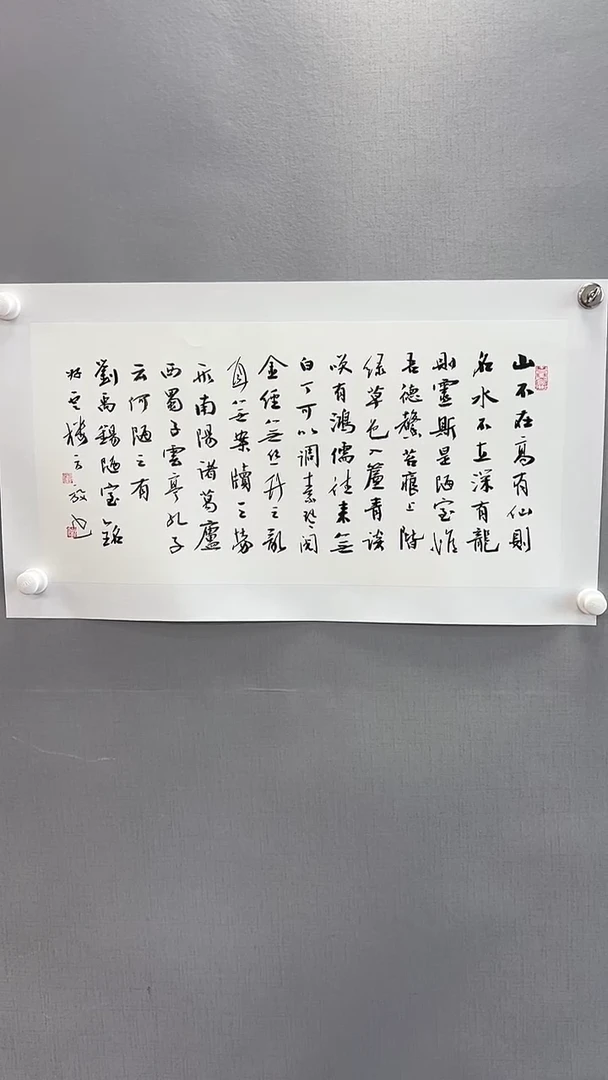 山不在高有仙則
名水不在深有龍
則靈斯是陋室惟
吾德馨苔痕上階
绿草色入簾青談
笑有鴻儒往来無
白丁可以调素琴阅
金經無丝竹之亂
耳無案牘之勞
形南陽諸葛廬
西蜀子雲亭孔子
云何陋之有
劉禹錫陋室銘